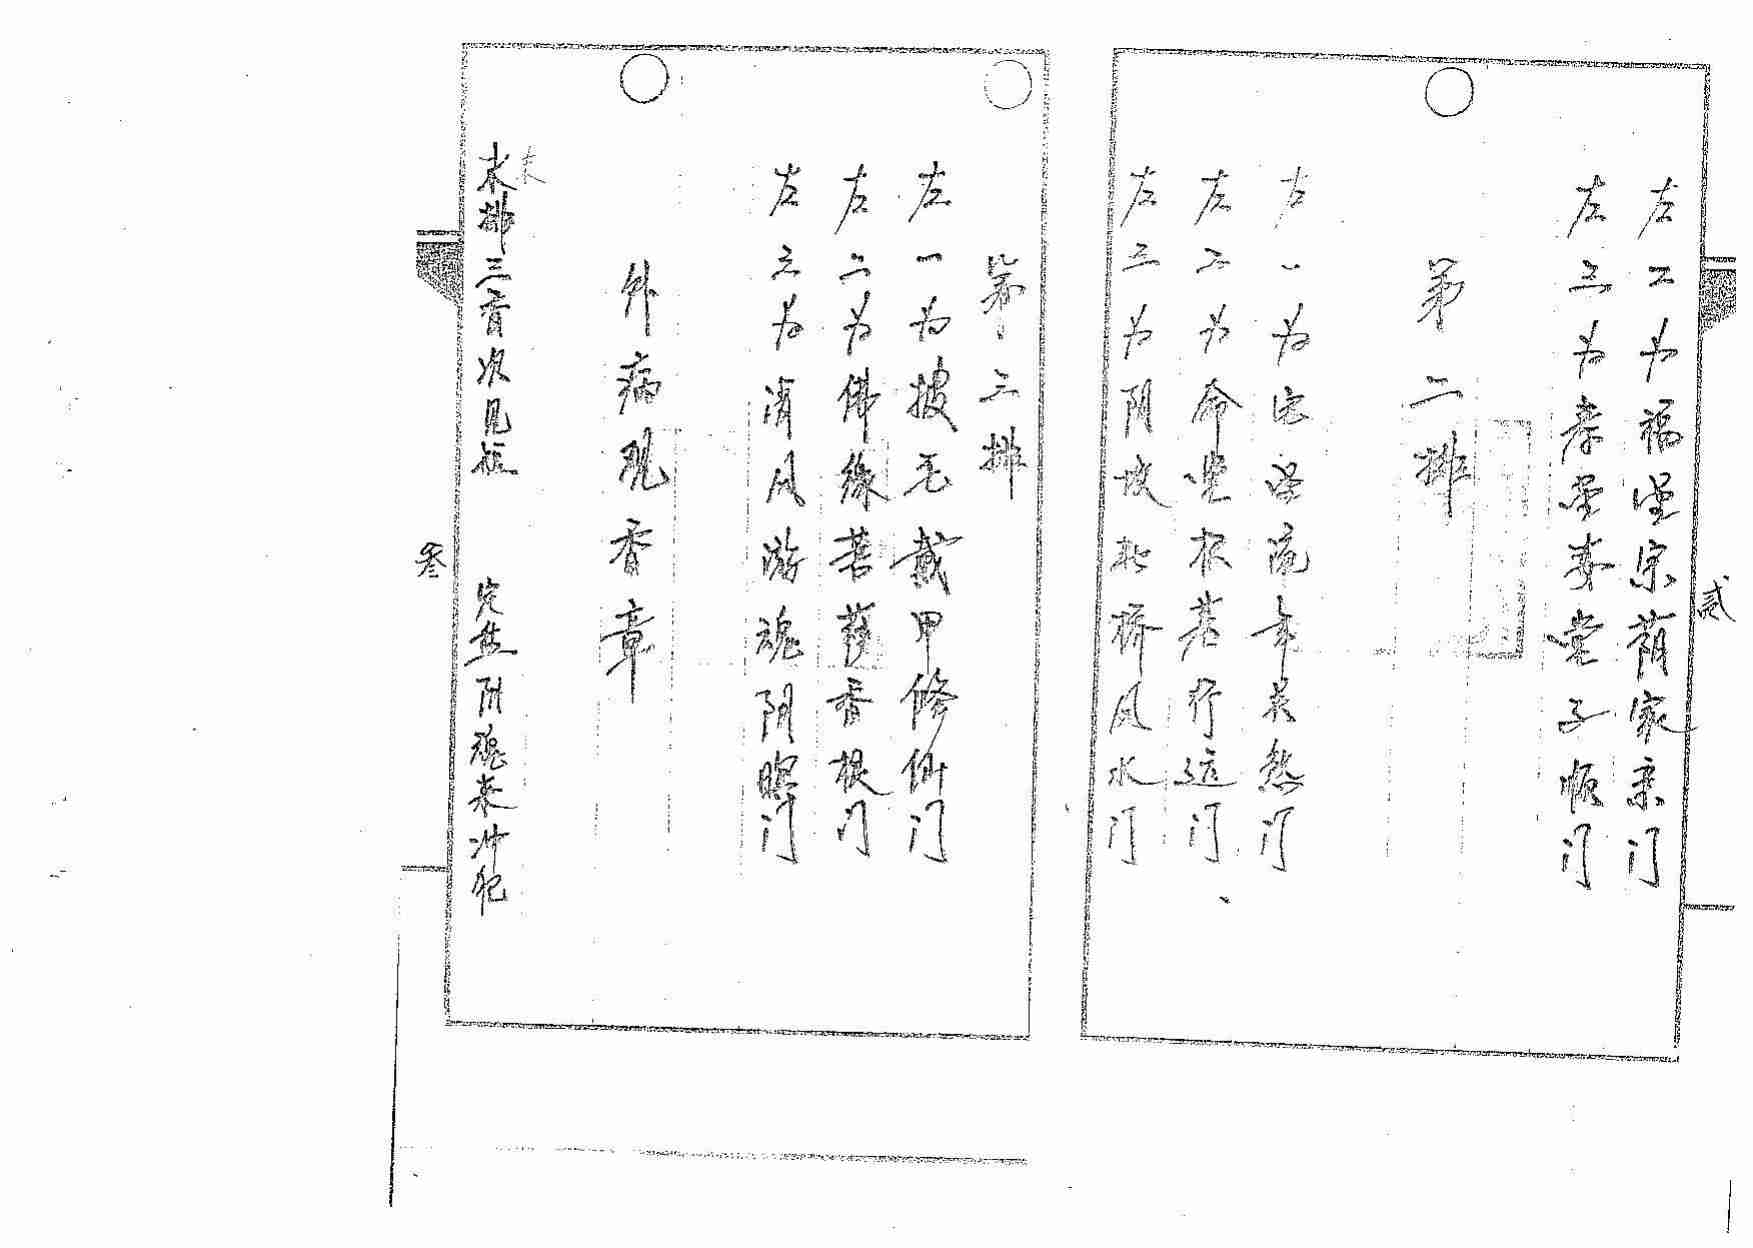 左二为福堂宗荫家亲门
左三为孝堂妻堂子顺门
第二排
左一为宅堂流年关煞门
左二为命堂根基行运门
左三为阴坟 桥风水门
贰
第三排
左一为披毛戴甲修仙门
左二为佛缘菩萨香根门
左三为清风游魂阴 门
外病观香章
末排三首次见
末
定然阴魂来冲犯
叁